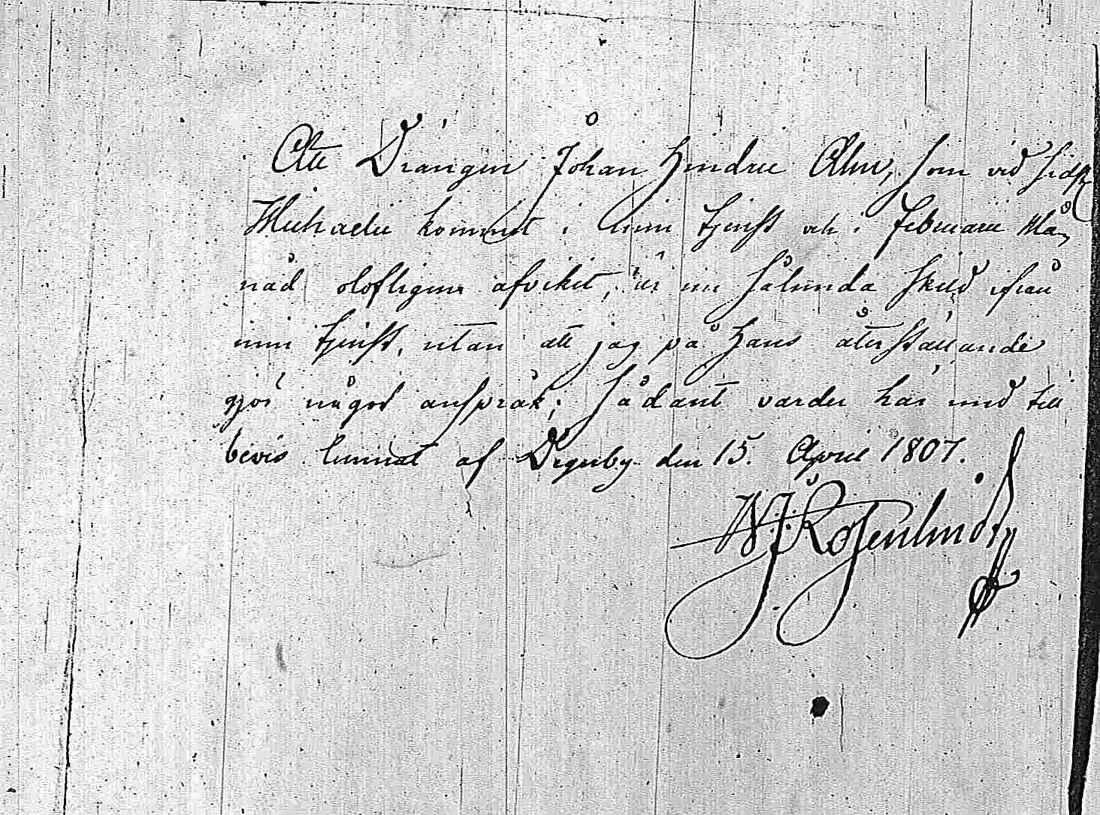 Att Drängen Johan Hindric Alm, som vid sidst
Michaelii kommit i min tjenst och i Februarii Må„
nad olofligen afvikit, är nu sålunda skild ifrån
min tjenst, utan att jag på Hans återställande
gjör något anspråk; Sådant varder här med till
bevis lemnat af Degerby den 15. April 1807.
W. J. Rosenlindt